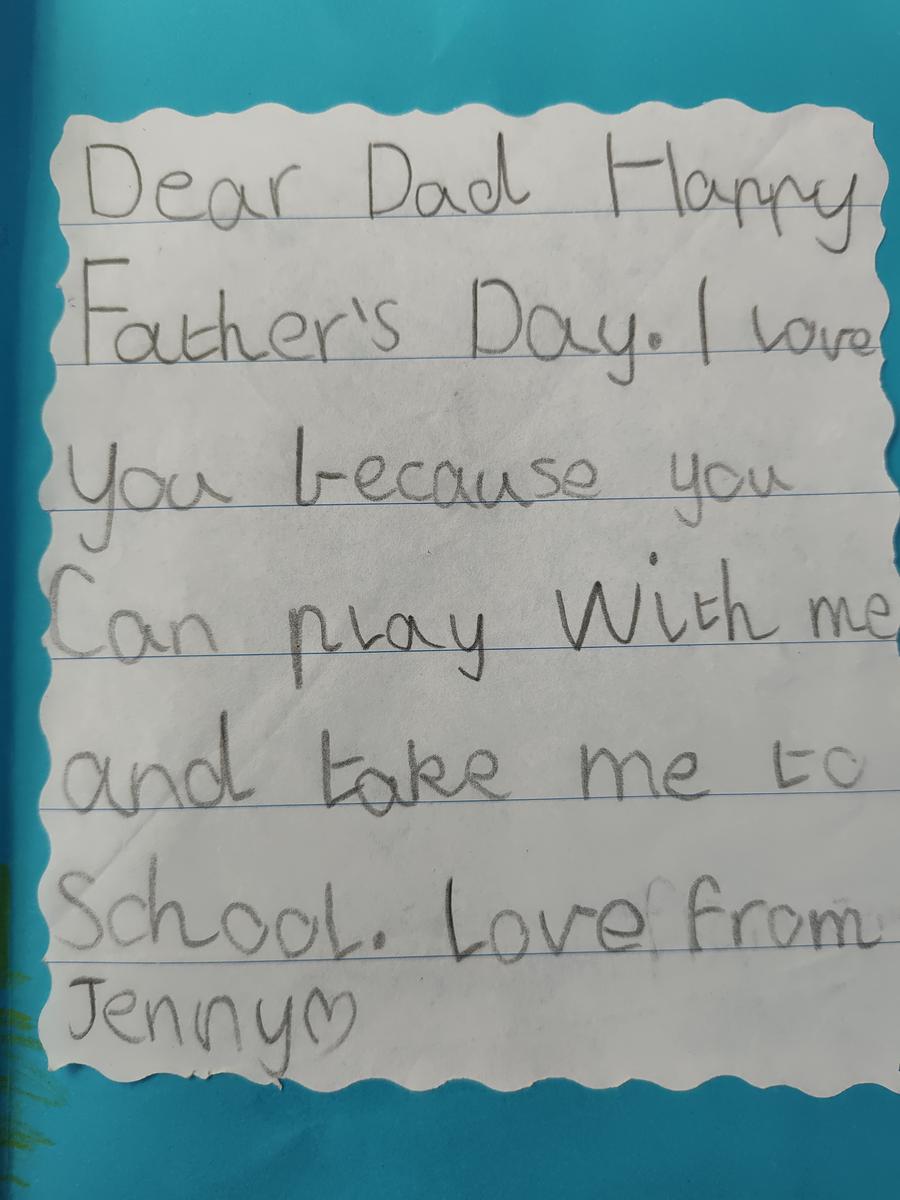 Dear Dad Happy
Father's Day. I love
you because you
Can play With me
and take me to
School. Love from
Jenny♡